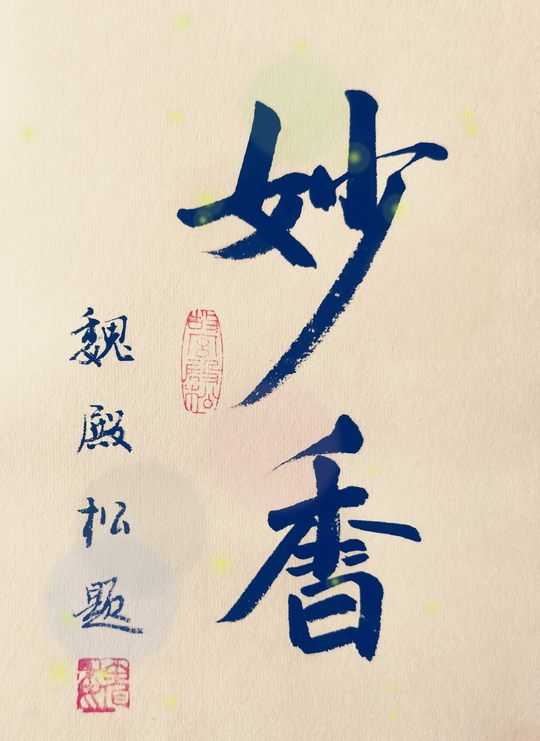 妙香
魏殿松題